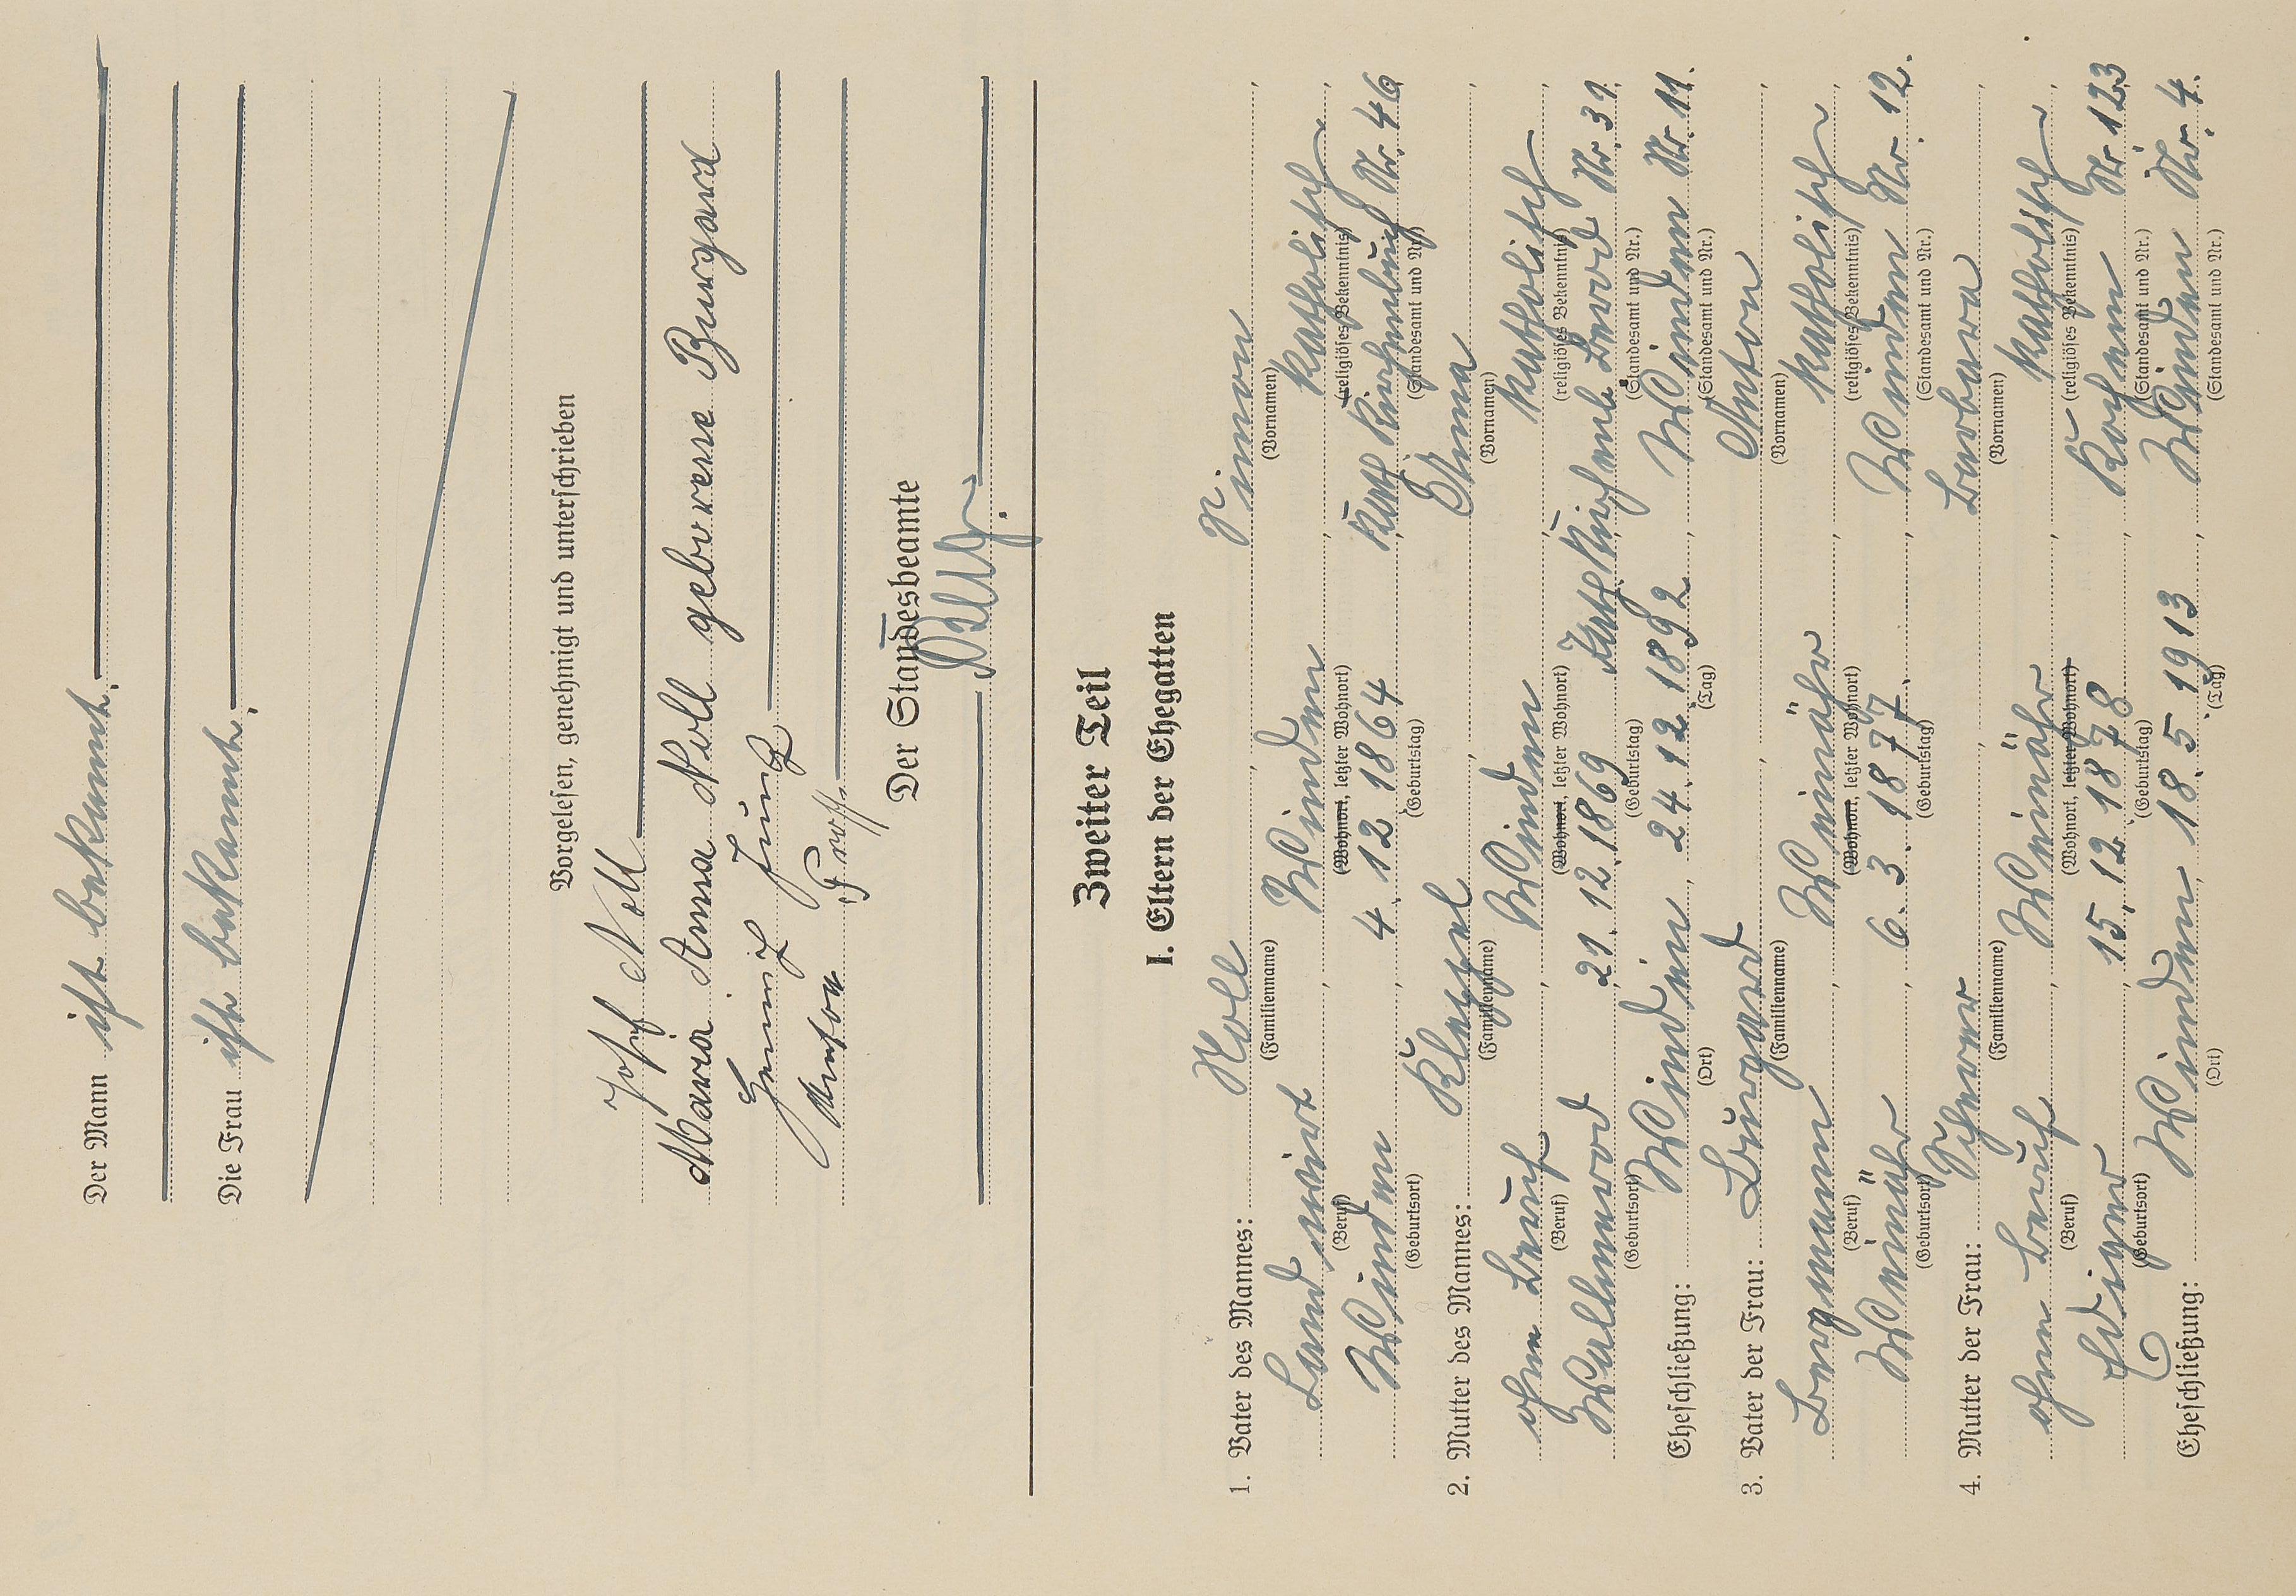 Der Mann ist bekannt.
Die Frau ist bekannt.
Vorgelesen, genehmigt und unterschrieben
Josef Noll
Maria Anna Noll geborene Burgard
Heinrich Jung
Anton
Der Standesbeamte
Zweiter Teil
I. Eltern der Ehegatten
1. Vater des Mannes: Noll, Simon,
(Familienname) (Vornamen)
Landwirt, Winden, katholisch,
(Beruf) (Wohnort, letzter Wohnort) (religiöses Bekenntnis)
Winden, 4. 12. 1864, Kath Kirchenbuch Nr. 46
(Geburtsort) (Geburtstag) (Standesamt und Nr.)
2. Mutter des Mannes: Kleppel, Anna,
(Familienname) (Vornamen)
ohne Beruf, Winden, katholisch,
(Beruf) (Wohnort, letzter Wohnort) (religiöses Bekenntnis)
21. 12. 1869, Nr. 31.
(Geburtsort) (Geburtstag) (Standesamt und Nr.)
Eheschließung: Winden, 24. 12. 1892, Winden Nr. 11.
(Ort) (Tag) (Standesamt und Nr.)
3. Vater der Frau: Burgard, Anton,
(Familienname) (Vornamen)
Bergmann, Weinähr, katholisch,
(Beruf) (Wohnort, letzter Wohnort) (religiöses Bekenntnis)
Weinähr, 6. 3. 1877., Winden Nr. 12.
(Geburtsort) (Geburtstag) (Standesamt und Nr.)
4. Mutter der Frau: Scherer, Barbara,
(Familienname) (Vornamen)
ohne Beruf, Weinähr, katholisch,
(Beruf) (Wohnort, letzter Wohnort) (religiöses Bekenntnis)
Ediger, 15. 12. 1878, Kochem Nr. 123
(Geburtsort) (Geburtstag) (Standesamt und Nr.)
Eheschließung: Winden, 18. 5. 1913, Winden Nr. 4.
(Ort) (Tag) (Standesamt und Nr.)